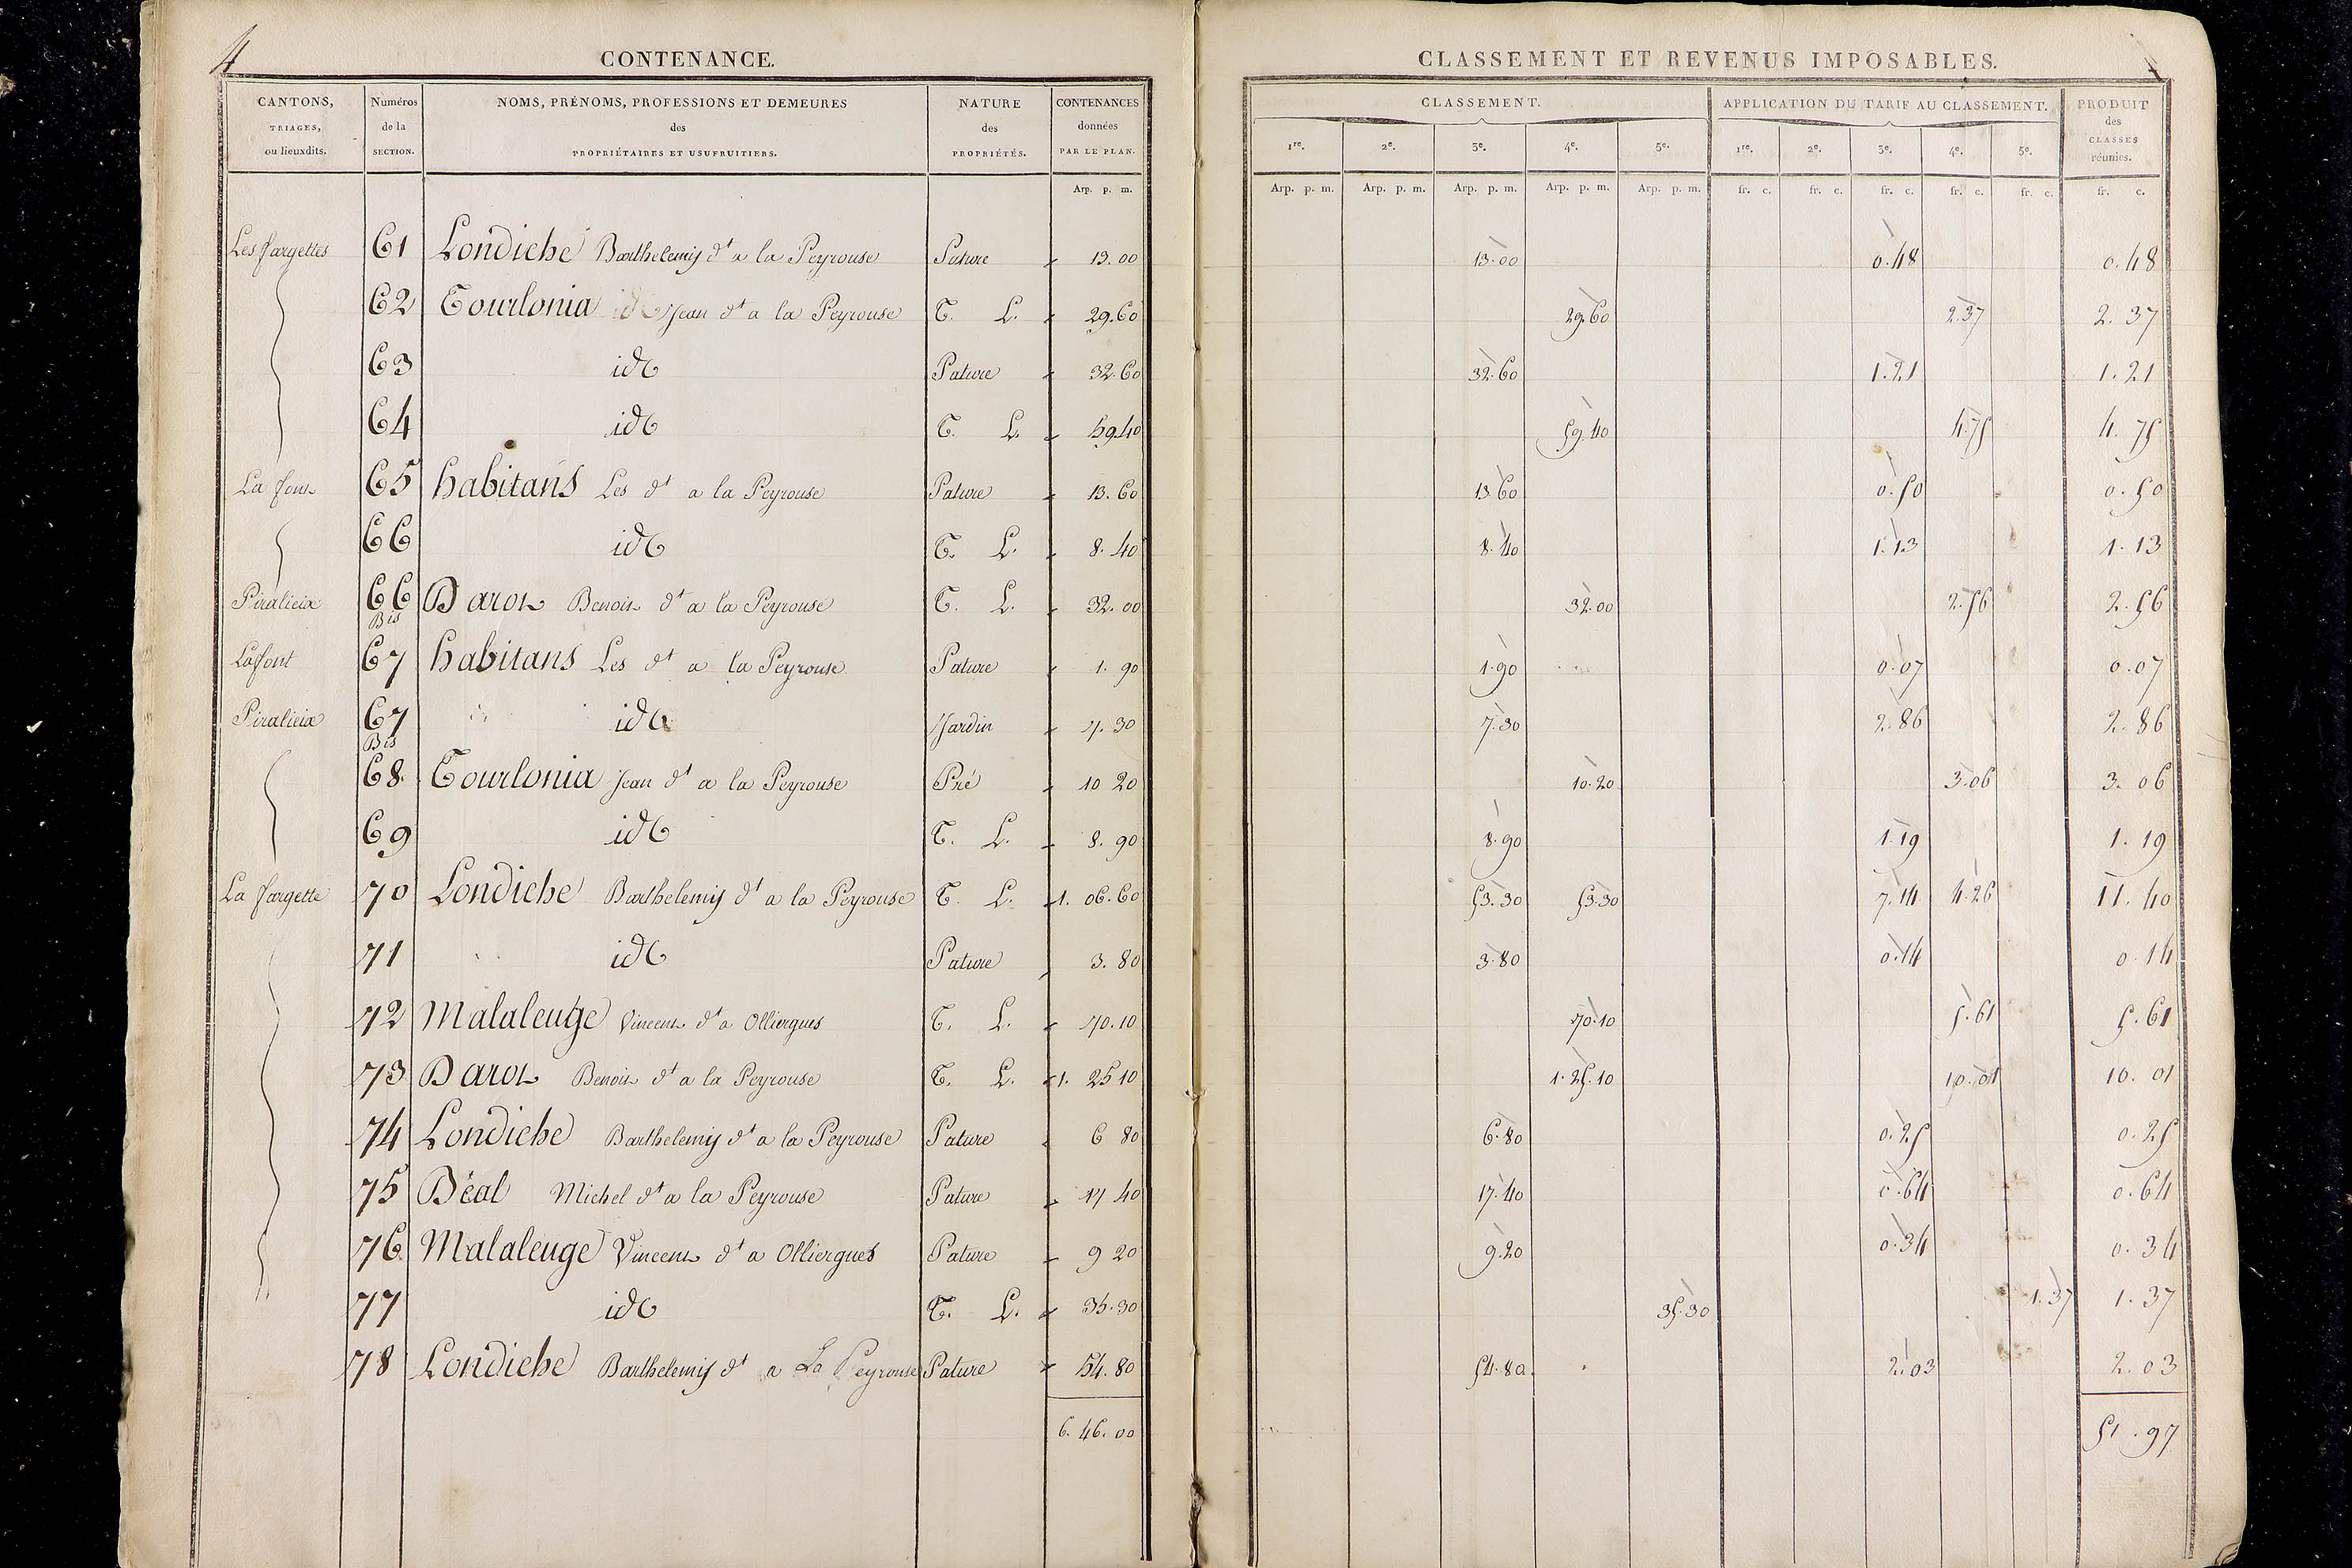 4
CONTENANCE.
CANTONS, TRIAGES, ou lieuxdits. | Numéros de la SECTION. | NOMS, PRÉNOMS, PROFESSIONS ET DEMEURES des PROPRIÉTAIRES ET USUFRUITIERS. | NATURE des PROPRIÉTÉS. | CONTENANCES données PAR LE PLAN.
Arp. p. m.
CLASSEMENT ET REVENUS IMPOSABLES.
CLASSEMENT. | APPLICATION DU TARIF AU CLASSEMENT. | PRODUIT des CLASSES réunies.
1re. | 2e. | 3e. | 4e. | 5e. | 1re. | 2e. | 3e. | 4e. | 5e.
Arp. p. m. | Arp. p. m. | Arp. p. m. | Arp. p. m. | Arp. p. m. | fr. c. | fr. c. | fr. c. | fr. c. | fr. c. | fr. c.
Les fargettes 61 Londiche Barthelemy dt a la Peyrouse Pature 13.00 13.00 0.48 0.48
62 Tourlonia Jean dt a la Peyrouse T. L. 29.60 29.60 2.37 2.37
63 id Pature 32.60 32.60 1.21 1.21
64 id T. L. 59.40 59.40 4.75 4.75
La font 65 habitans Les dt a la Peyrouse Pature 13.60 13.60 0.50 0.50
66 id T. L. 8.40 8.40 1.13 1.13
Piralieix 66 Bis Darot Benoit dt a la Peyrouse T. L. 32.00 32.00 2.56 2.56
Lafont 67 habitans Les dt a la Peyrouse Pature 1.90 1.90 0.07 0.07
Piralieix 67 Bis id Jardin 7.30 7.30 2.86 2.86
68 Tourlonia Jean dt a la Peyrouse Pré 10 20 10.20 3.06 3.06
69 id T. L. 8.90 8.90 1.19 1.19
La fargette 70 Londiche Barthelemy dt a la Peyrouse T. L. 1.06.60 53.30 53.30 7.14 4.26 11.40
71 id Pature 3.80 3.80 0.14 0.14
72 Malaleuge Vincent dt a Olliergues T. L. 70.10 70.10 5.61 5.61
73 Darot Benoit dt a la Peyrouse T. L. 1.25 10 1.25.10 10.01 10.01
74 Londiche Barthelemy dt a la Peyrouse Pature 6 80 6.80 0.25 0.25
75 Béal Michel dt a la Peyrouse Pature 17 40 17.40 0.64 0.64
76 Malaleuge Vincent dt a Olliergues Pature 9 20 9.20 0.34 0.34
77 id T. L. 35.30 35.30 1.37 1.37
78 Londiche Barthelemy dt a La Peyrouse Pature 54.80 54.80 2.03 2.03
6.46.00 51.97